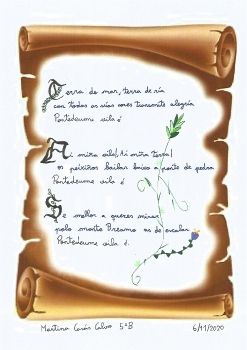 Terra de mar, terra de ría
con todas as súas cores transmite alegría
Pontedeume vila é
Ai miña vila! Ai miña terra!
os peixiños bailar baixo a ponte de pedra
Pontedeume vila é
Se mellor a queres mirar
polo monte Breamo as de escalar
Pontedeume vila é.
Martina Calvo 5ºB
6/11/2020